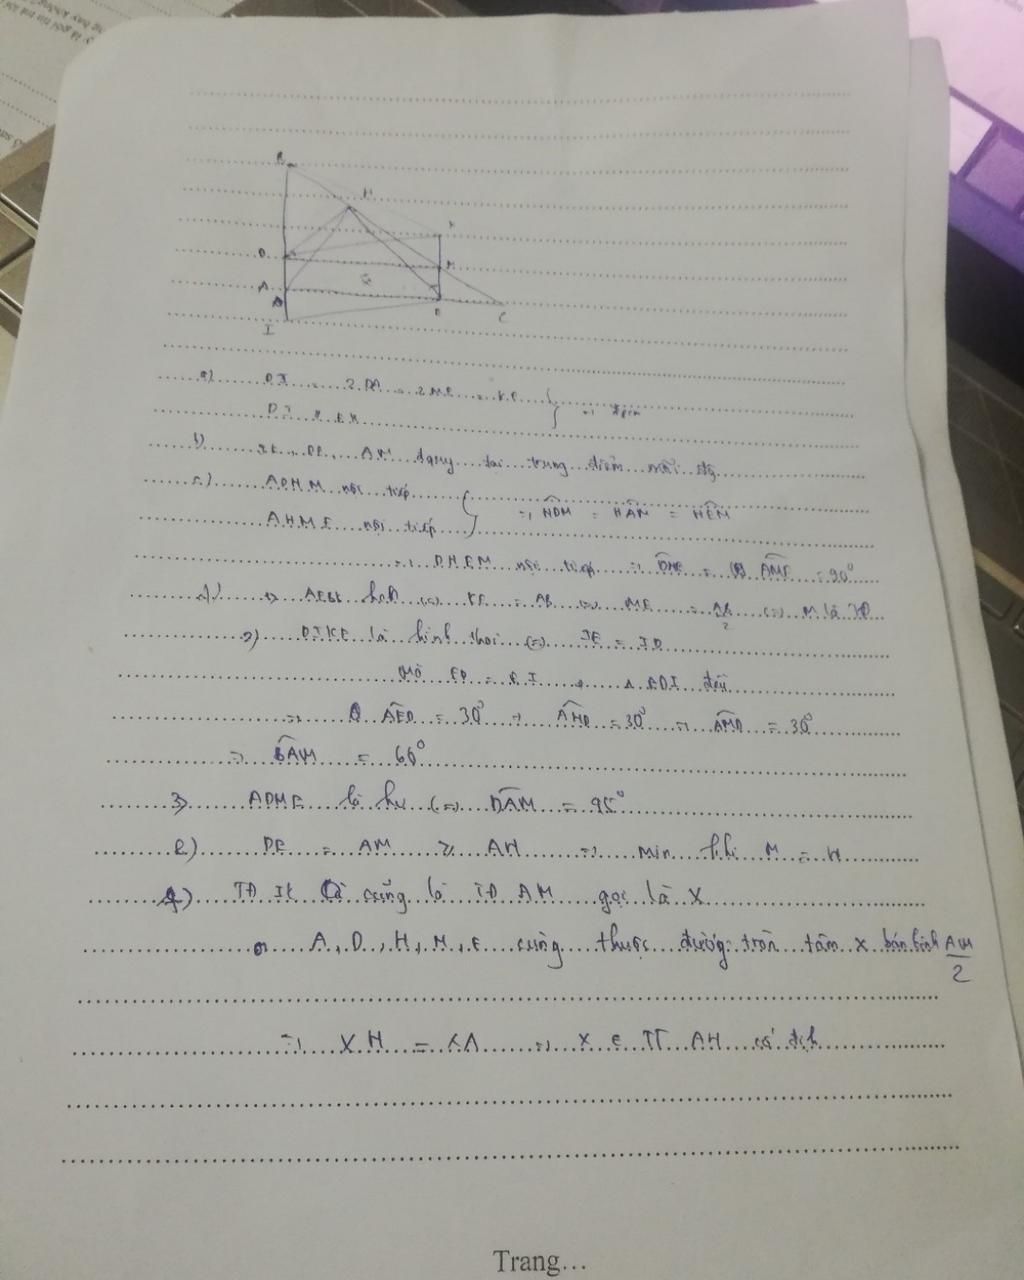 B
H
K
D
M
A
I
E
C
a) DI = 2.DA = 2.ME = KE
DI // EK
b) IK, DE, AM đquy tại trung điểm mỗi đg
c) ADHM nội tiếp
=> HDM = HAM = HEM
AHME nội tiếp
=> DHEM nội tiếp => DHE = AME = 90°
1) AEBK hbh <=> KE = AB <=> ME = AB/2 <=> M là TĐ
2) DIKE là hình thoi <=> IE = ID
Mà ED = EI => Δ EDI đều
=> AED = 30° => AHD = 30° => AMD = 30°
=> BAM = 60°
3) ADME là hv <=> DAM = 45°
e) DE = AM ≥ AH => min khi M = H
TĐ IK cũng là TĐ AM gọi là X
A, D, H, M, E cùng thuộc đường tròn tâm X bán kính AM/2
=> XH = XA => X ∈ TT AH cố định
Trang...